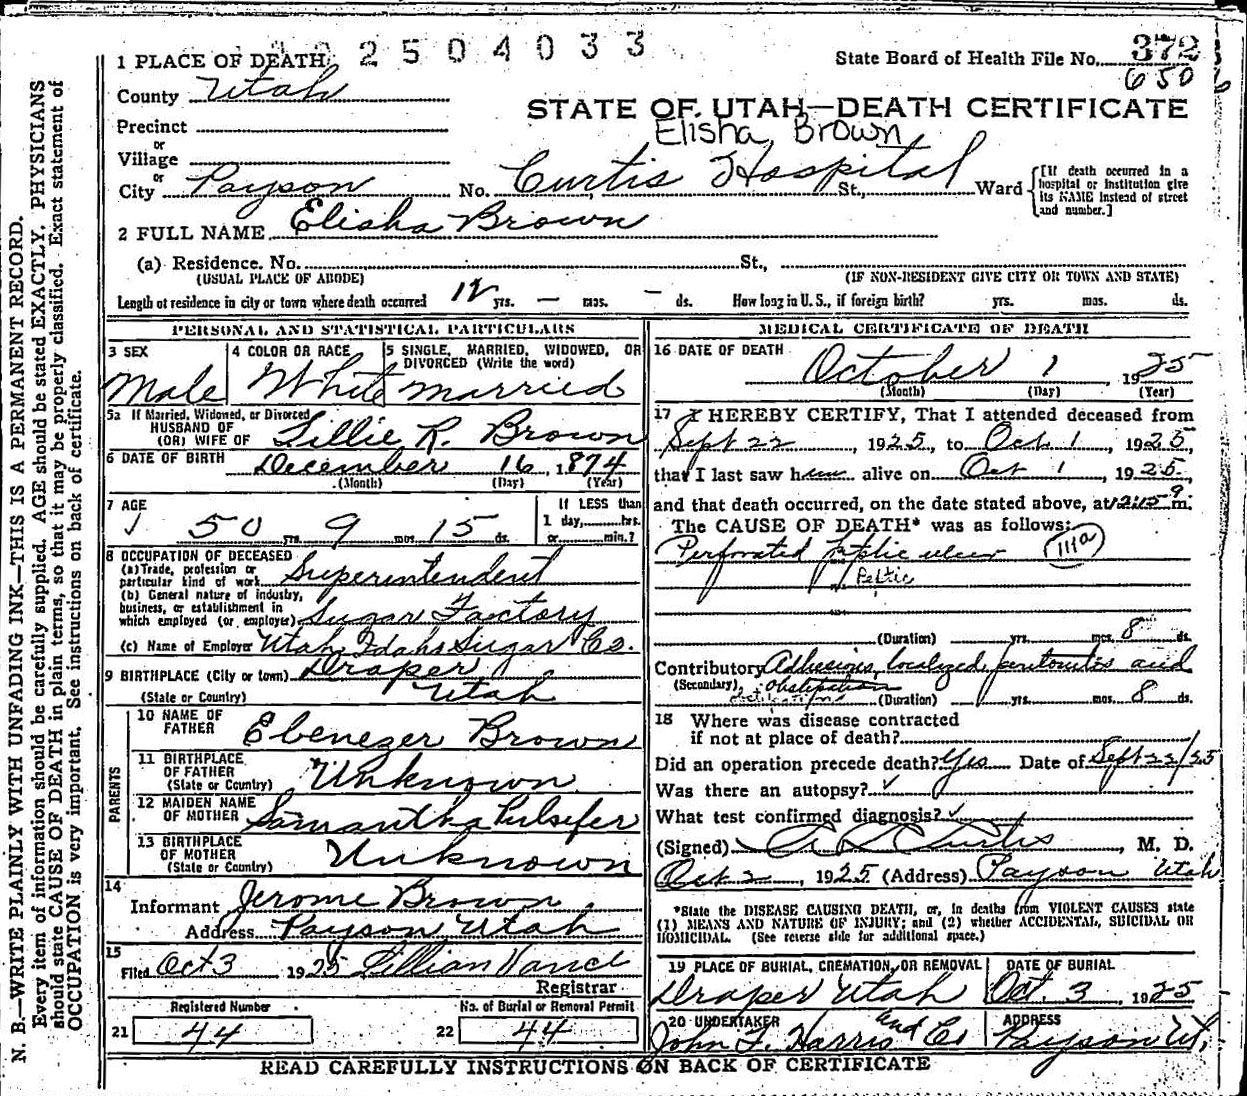 N. B.—WRITE PLAINLY WITH UNFADING INK—THIS IS A PERMANENT RECORD.
Every item of information should be carefully supplied. AGE should be stated EXACTLY. PHYSICIANS
should state CAUSE OF DEATH in plain terms, so that it may be properly classified. Exact statement of
OCCUPATION is very important. See instructions on back of certificate.
2504033
State Board of Health File No. 372
650
1 PLACE OF DEATH
County Utah
STATE OF UTAH—DEATH CERTIFICATE
Precinct
Elisha Brown
or
Village
or
City Payson No. Curtis Hospital St., Ward
[If death occurred in a
hospital or institution give
its NAME instead of street
and number.]
2 FULL NAME Elisha Brown
(a) Residence. No. St.,
(USUAL PLACE OF ABODE) (IF NON-RESIDENT GIVE CITY OR TOWN AND STATE)
Length of residence in city or town where death occurred 12 yrs. — mos. — ds. How long in U. S., if foreign birth? yrs. mos. ds.
PERSONAL AND STATISTICAL PARTICULARS
3 SEX
Male
4 COLOR OR RACE
White
5 SINGLE, MARRIED, WIDOWED, OR
DIVORCED (Write the word)
married
5a If Married, Widowed, or Divorced
HUSBAND OF
(OR) WIFE OF Lillie R. Brown
6 DATE OF BIRTH December 16, 1874
(Month) (Day) (Year)
7 AGE
50 yrs. 9 mos. 15 ds.
If LESS than
1 day, hrs.
or min.?
8 OCCUPATION OF DECEASED
(a) Trade, profession or
particular kind of work Superintendent
(b) General nature of industry,
business, or establishment in
which employed (or employer) Sugar Factory
(c) Name of Employer Utah Idaho Sugar Co.
9 BIRTHPLACE (City or town) Draper
(State or Country) Utah
PARENTS
10 NAME OF
FATHER Ebenezer Brown
11 BIRTHPLACE
OF FATHER
(State or Country) Unknown
12 MAIDEN NAME
OF MOTHER Samantha Pulsifer
13 BIRTHPLACE
OF MOTHER
(State or Country) Unknown
14
Informant Jerome Brown
Address Payson, Utah
15
Filed Oct 3 1925 Lillian Vance
Registrar
Registered Number No. of Burial or Removal Permit
21 44 22 44
MEDICAL CERTIFICATE OF DEATH
16 DATE OF DEATH
October 1, 1925
(Month) (Day) (Year)
17 I HEREBY CERTIFY, That I attended deceased from
Sept 22, 1925, to Oct 1, 1925,
that I last saw him alive on Oct 1, 1925,
and that death occurred, on the date stated above, at m.
The CAUSE OF DEATH* was as follows:
Perforated peptic ulcer 111a
Peptic
(Duration) yrs. mos. 8 ds.
Contributory Adhesions, localized peritonitis and
(Secondary) obstipation
(Duration) yrs. mos. 8 ds.
18 Where was disease contracted
if not at place of death?
Did an operation precede death? Yes Date of Sept 22/25
Was there an autopsy? ✓
What test confirmed diagnosis? ✓
(Signed) Curtis, M. D.
Oct 2, 1925 (Address) Payson Utah
*State the DISEASE CAUSING DEATH, or, in deaths from VIOLENT CAUSES state
(1) MEANS AND NATURE OF INJURY; and (2) whether ACCIDENTAL, SUICIDAL OR
HOMICIDAL. (See reverse side for additional space.)
19 PLACE OF BURIAL, CREMATION, OR REMOVAL
Draper Utah
DATE OF BURIAL
Oct. 3, 1925
20 UNDERTAKER
John F. Harris and Co
ADDRESS
Payson Ut,
READ CAREFULLY INSTRUCTIONS ON BACK OF CERTIFICATE